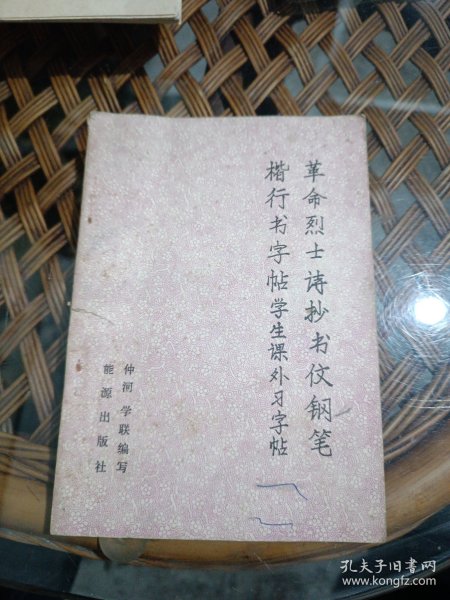 革命烈士诗抄书仪钢笔
楷行书字帖学生课外习字帖
仲河 学联编写
能源出版社
孔夫子旧书网
www.kongfz.com